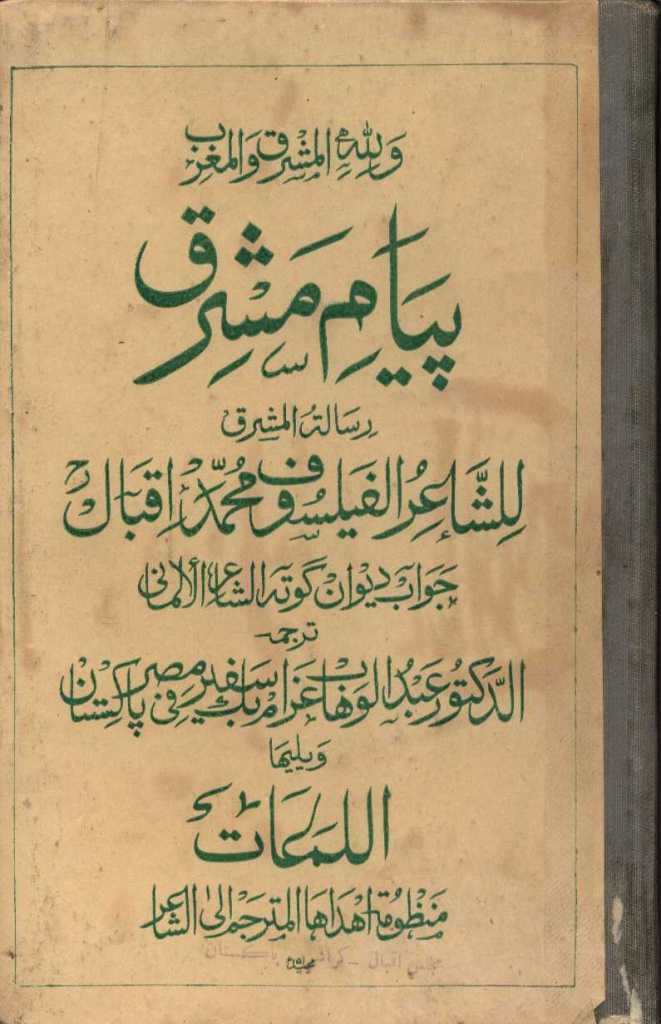 وَلِلّٰهِ المَشْرِقُ وَالمَغْرِبُ
پَیَامِ مَشْرِق
رسالة المشرق
لِلشَّاعِرُ الفَیلسُوف مُحَمَّد اِقبَال
جَوَاب دیوَان گوته الشاعر الألمانی
ترجمة
الدّکتور عَبدُ الوَهاب عَزام بك سَفیر مِصر فِی پاکِستَان
وَیلیها
اللمَعَات
مَنظُومَة اهدَاها المترجم الی الشاعر
مجلس اقبال - کراتشی پاکستان